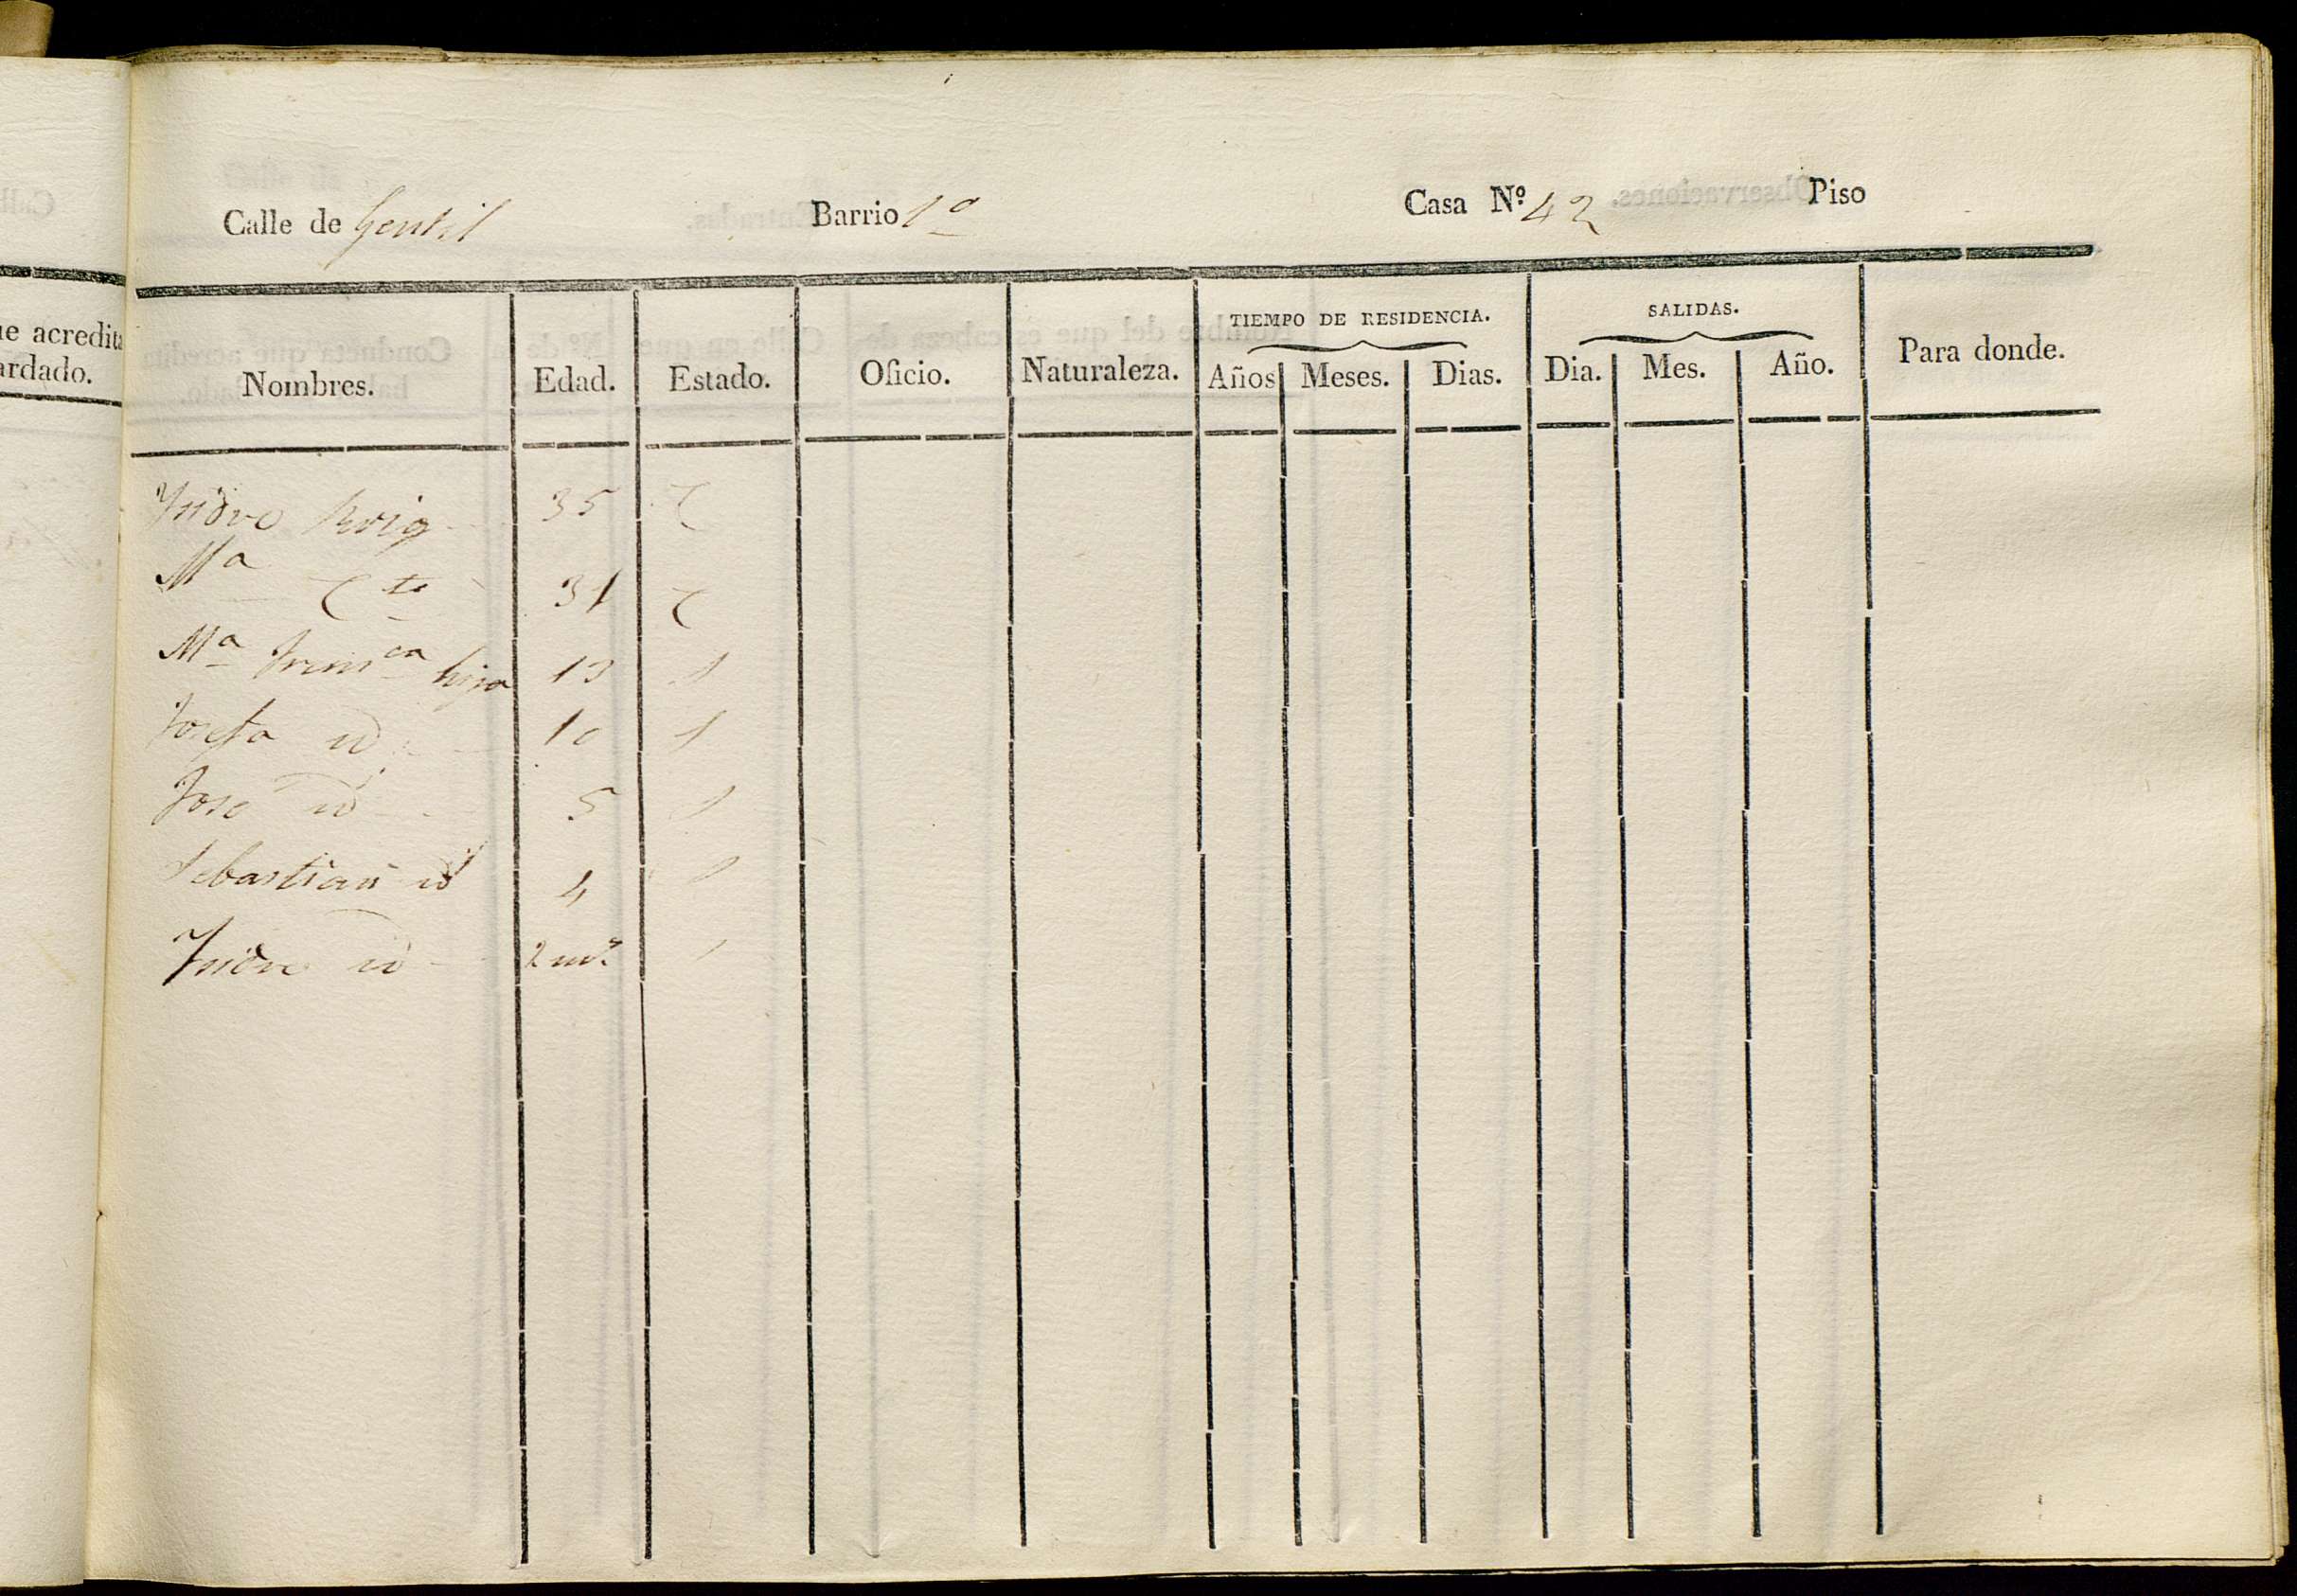 Calle de Gentil Barrio 1º Casa Nº 42 Piso
ue acredita
ardado.
Nombres. Edad. Estado. Oficio. Naturaleza. TIEMPO DE RESIDENCIA. Años Meses. Dias. SALIDAS. Dia. Mes. Año. Para donde.
Ysidro Roig 35 C
Mª Cte 31 C
Mª Franca hija 13 S
Josefa id 10 S
Jose id 5 S
Sebastian id 4 S
Ysidro id 2 ms